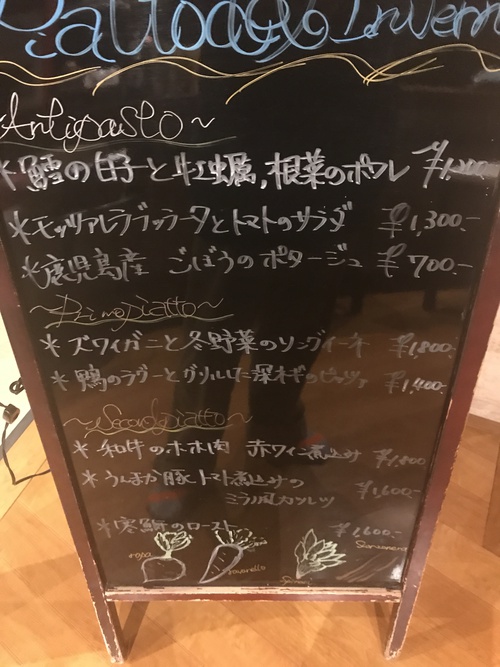 Antipasto~
*鱈の白子と牡蠣,根菜のボウレ ¥1,200-
*モッツァレラブッラータとトマトのサラダ ¥1,300.-
*鹿児島産 ごぼうのポタージュ ¥700.-
~Primopiatto~
*ズワイガニと冬野菜のリングイーネ ¥1,800-
*鴨のラグーとグリルした深ネギのピッツァ ¥1,400.-
~Secondopiatto~
*和牛のホホ肉 赤ワイン煮込み
*うんまか豚トマト煮込みの
ミラノ風カツレツ ¥1,600.-
*寒鰤のロースト ¥1,600.-
rapa